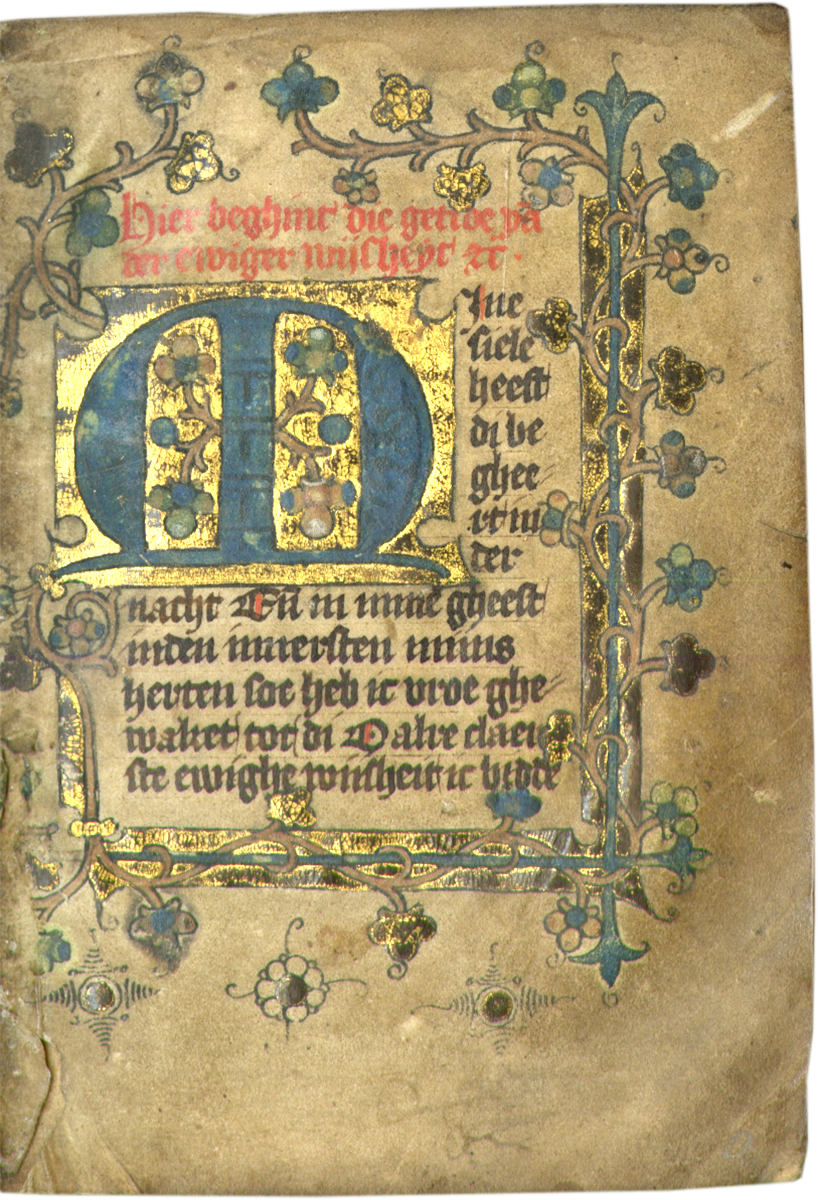 Hier beghint die getide vā
der ewiger wijsheyt ⁊c̄ ·
Mine
siele
heeft
di be
ghee
rt in
der
nacht En̄ in mine gheest
inden innersten mijns
herten soe heb ic vroe ghe
waket tot di O alre claer
ste ewighe wijsheit ic bidde